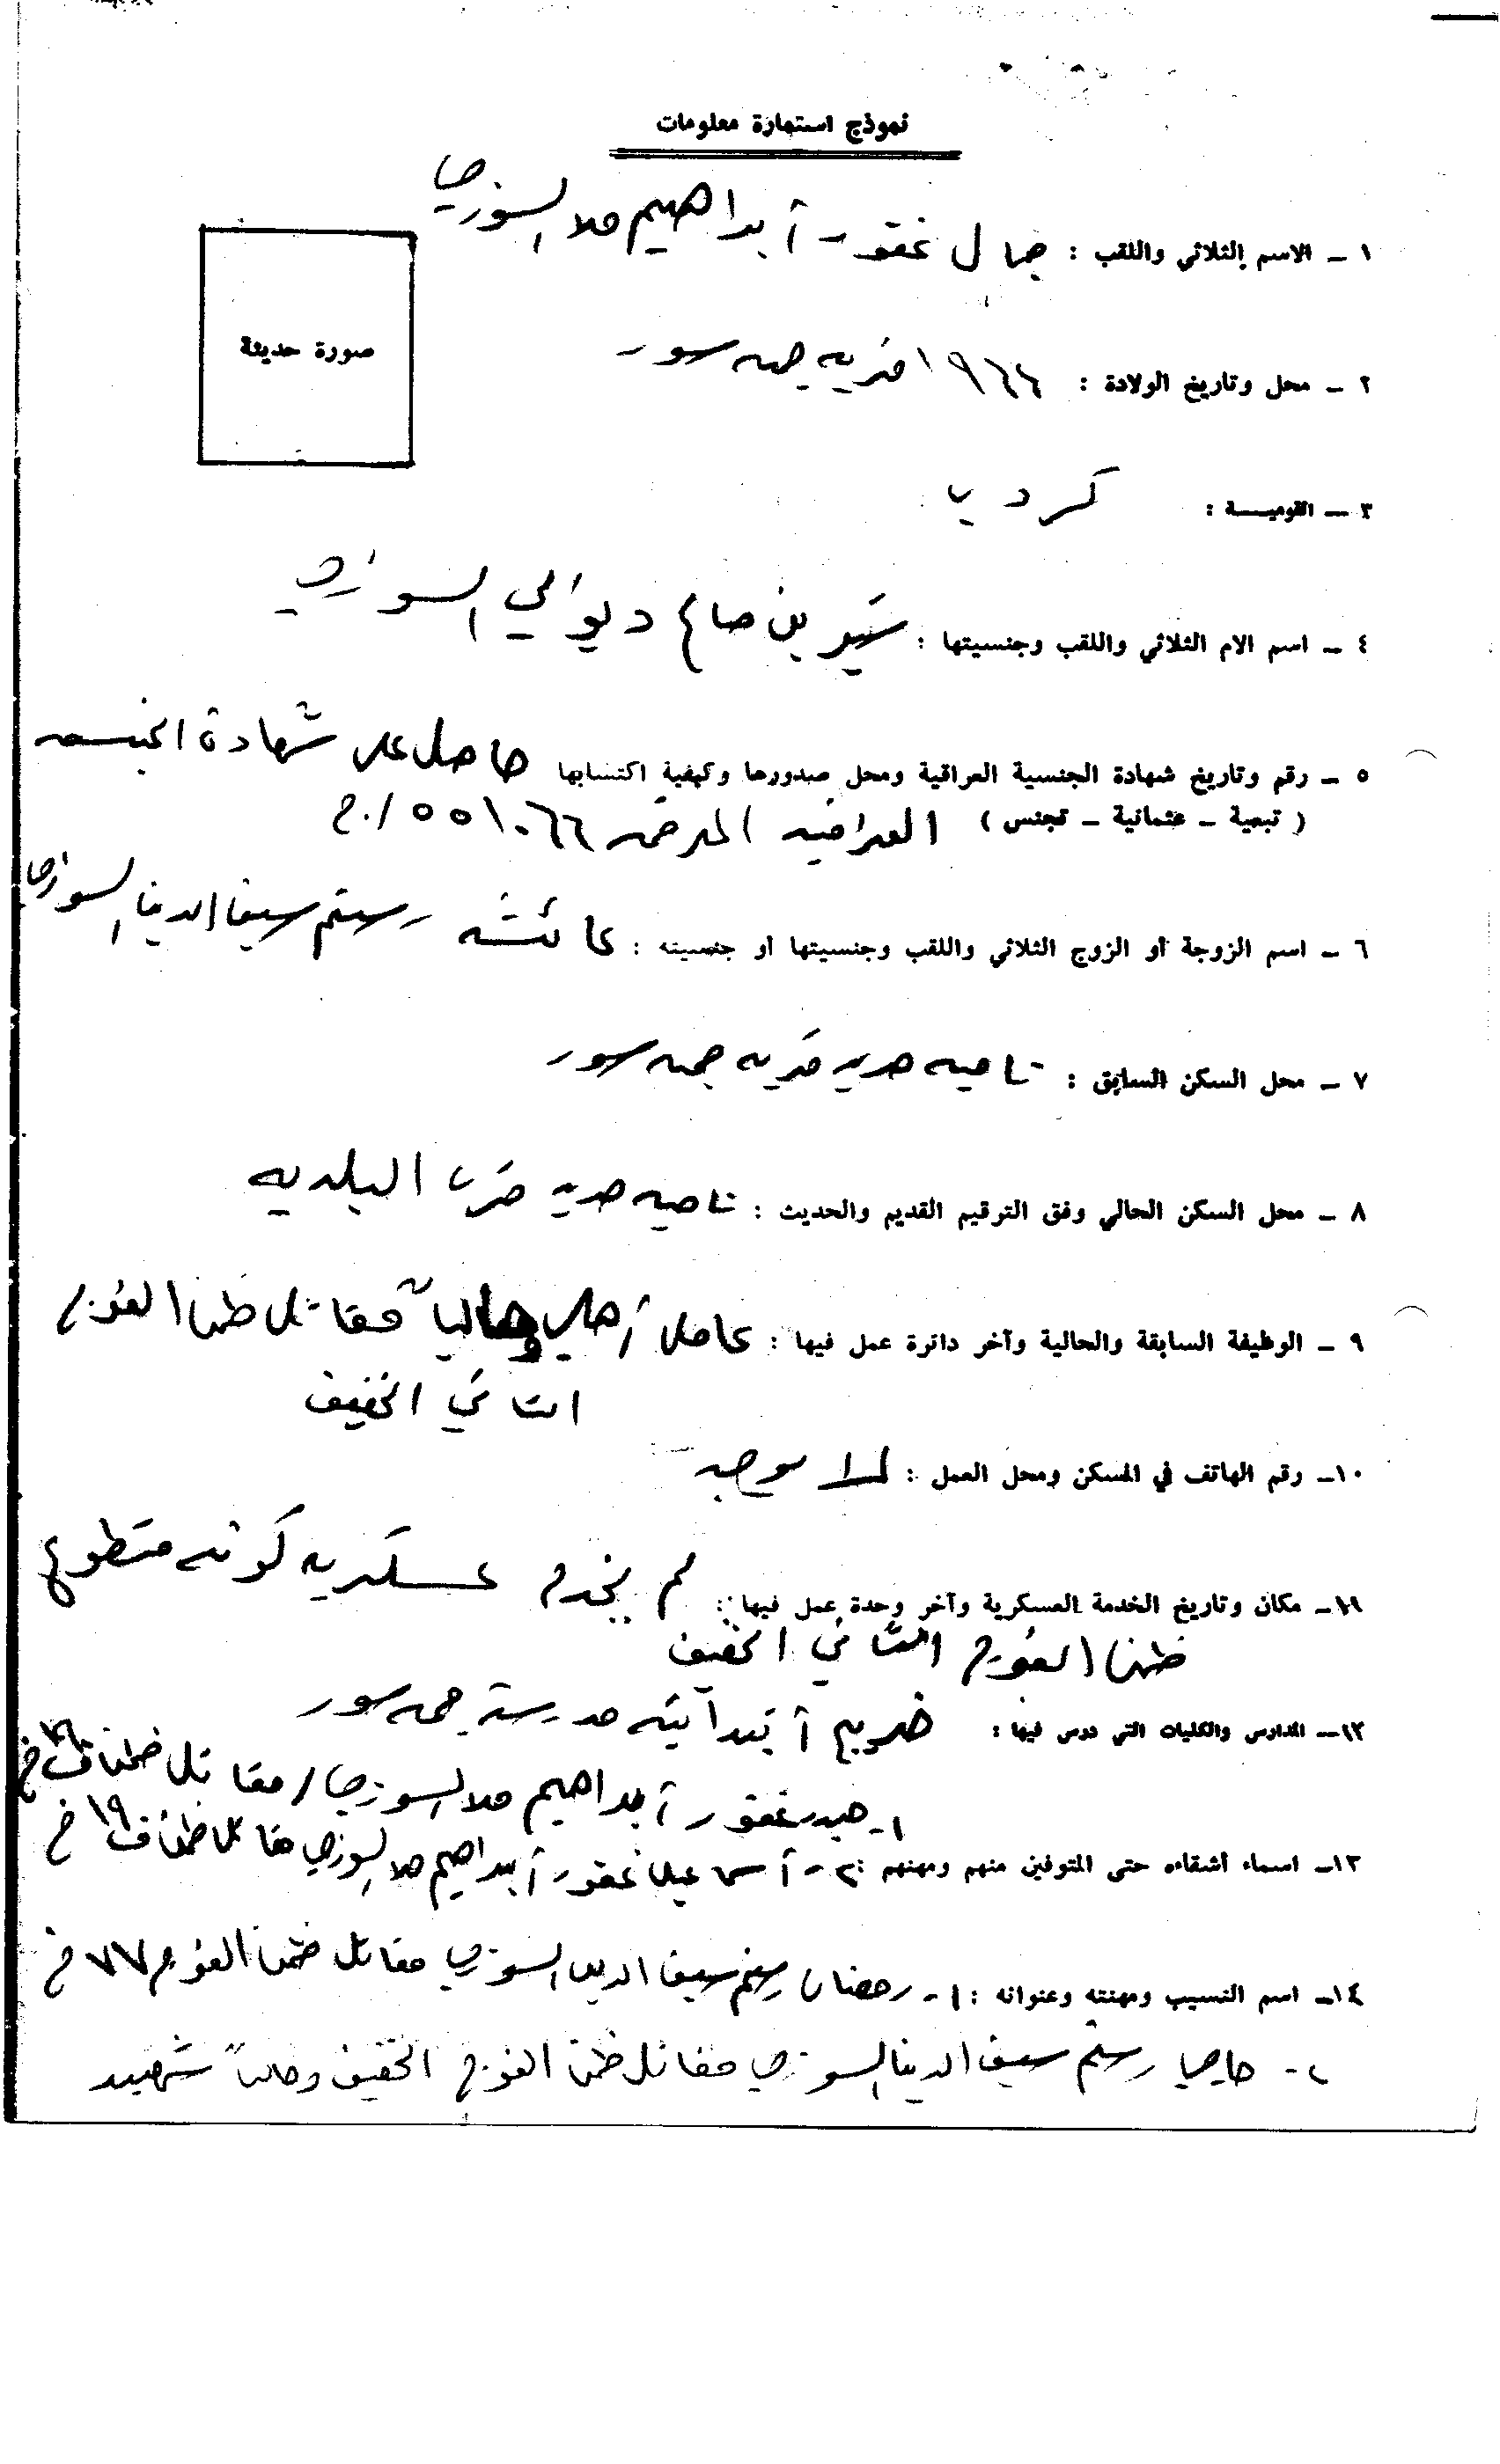 نموذج استمارة معلومات
صورة حديثة
١ – الاسم الثلاثي واللقب : جمال غفور أبراهيم ملا السوزي
٢ – محل وتاريخ الولادة : ١٩٦٦ قرية جمه سور
٣ – القوميـــة : كردي
٤ – اسم الام الثلاثي واللقب وجنسيتها : صالح السوزي
٥ – رقم وتاريخ شهادة الجنسية العراقية ومحل صدورها وكيفية اكتسابها حاصل على شهادة الجنسيه
( تبعية – عثمانية – تجنس ) العراقيه المرقمه
٦ – اسم الزوجة أو الزوج الثلاثي واللقب وجنسيتها أو جنسيته : عائشه رستم سيف الدين السوزي
٧ – محل السكن السابق : ناحيه حرير قريه جمه سور
٨ – محل السكن الحالي وفق الترقيم القديم والحديث : ناحيه حرير قرب البلديه
٩ – الوظيفة السابقة والحالية وآخر دائرة عمل فيها : عامل أهلي وحالياً مقاتل ضمن الفوج
الثاني الخفيف
١٠– رقم الهاتف في المسكن ومحل العمل : لا يوجد
١١– مكان وتاريخ الخدمة العسكرية وآخر وحدة عمل فيها : لم يخدم عسكريه كونه متطوع
ضمن الفوج الثاني الخفيف
١٢– المدارس والكليات التي درس فيها : خريج أبتدائيه مدرسة جمه سور
١- حيدر غفور أبراهيم ملا السوزي / مقاتل ضمن ف
١٣– اسماء أشقاءه حتى المتوفين منهم ومهنهم : ٢- أسماعيل غفور أبراهيم ملا السوزي مقاتل ضمن ف ١٩ خ
١٤– اسم النسيب ومهنته وعنوانه : ١- رمضان رستم سيف الدين السوزي مقاتل ضمن الفوج ٧٧ خ
٢- رستم سيف الدين السوزي مقاتل ضمن الفوج الخفيف وحالياً شهيد